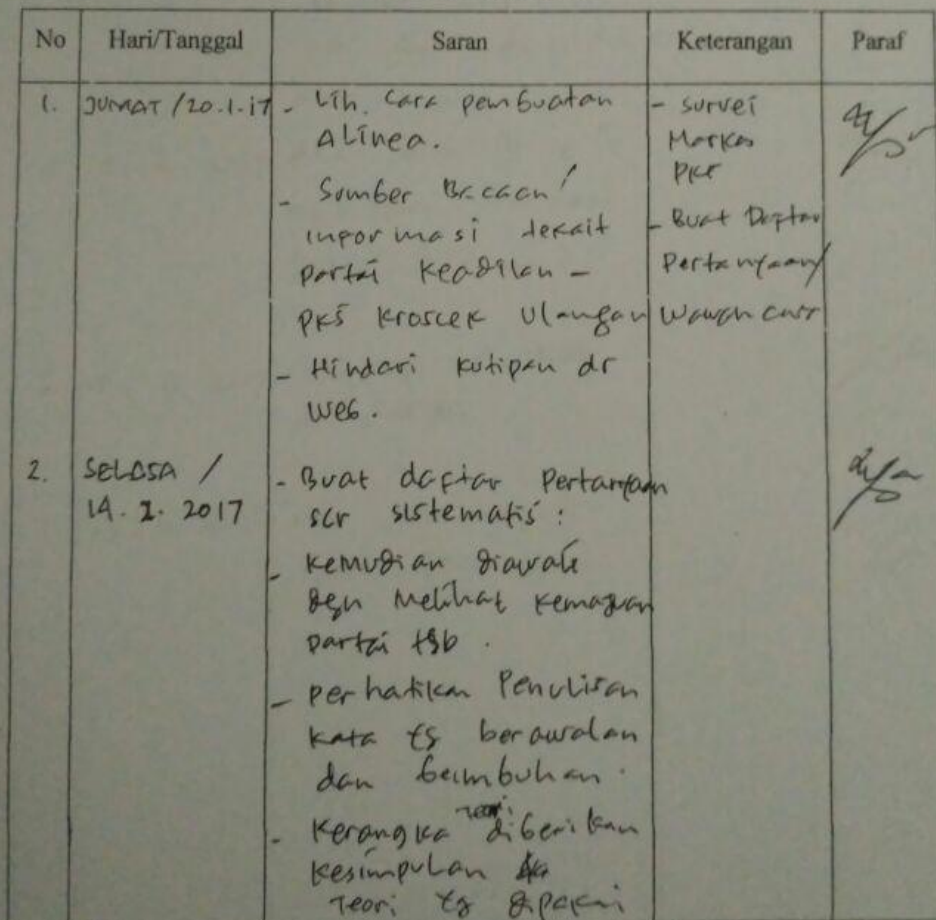 No Hari/Tanggal Saran Keterangan Paraf
1. JUMAT / 20.1.17 - Lih. Cara pembuatan
Alinea.
- Sumber Bacaan /
informasi terkait
partai Keadilan -
PKS kroscek Ulangan
- Hindari kutipan dr
web.
- survei
Markas
PKS
- Buat Daftar
Pertanyaan/
Wawancara
2. SELASA /
14. 2. 2017
- Buat daftar Pertanyaan
scr sistematis :
- kemudian diawali
dgn Melihat kemajuan
partai tsb.
- perhatikan Penulisan
kata yg berawalan
dan berimbuhan.
- Kerangka Teori diberikan
kesimpulan
Teori yg dipakai